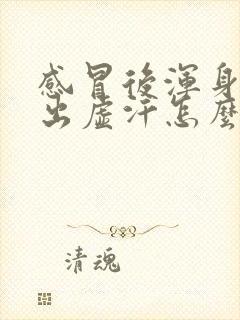 感冒後渾身
出虛汗怎麼
清魂